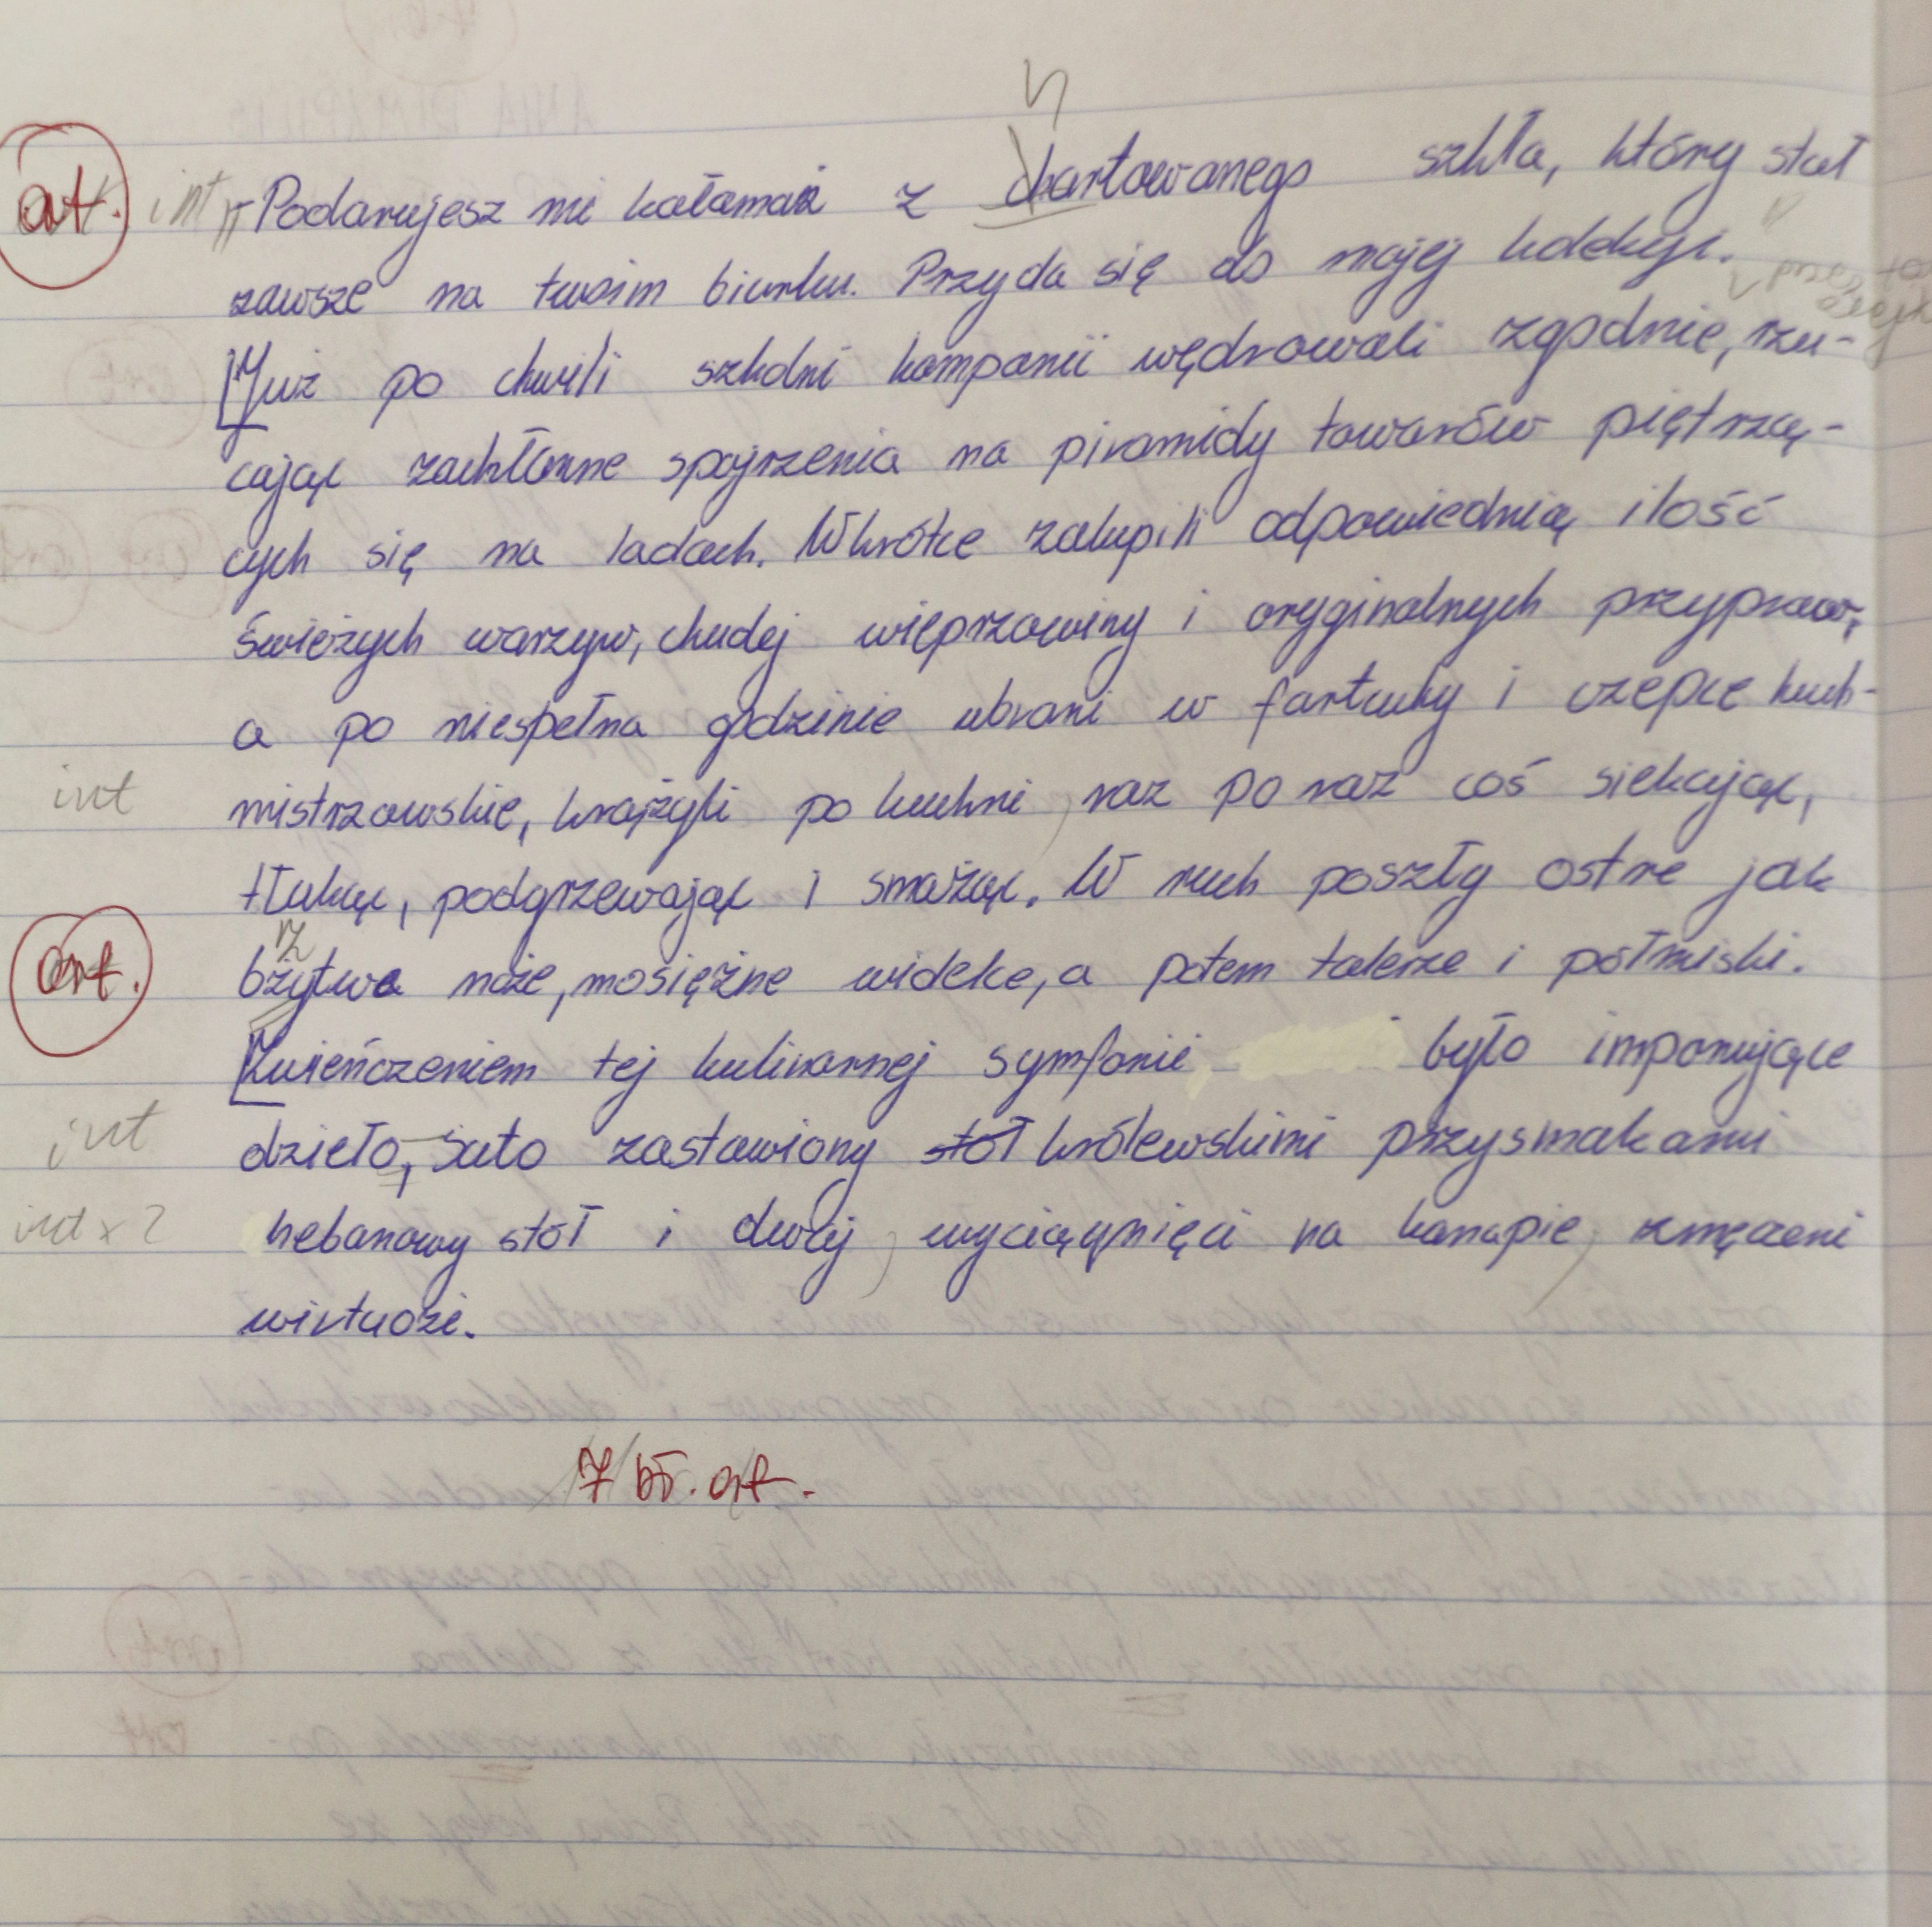 h
ort. int „Podarujesz mi kałamaż z chartowanego szkła, który stał
zawsze na twoim biurku. Przyda się do mojej kolekcji.
Już po chwili szkolni kompanii wędrowali zgodnie, rzu-
cając zachłanne spojrzenia na piramidy towarów piętrzą-
cych się na ladach. Wkrótce zakupili odpowiednią ilość
świeżych warzyw, chudej wieprzowiny i oryginalnych przypraw,
a po niespełna godzinie ubrani w fartuchy i czepce kuch-
int mistrzowskie, krążyli po kuchni, raz po raz coś siekając,
tłukąc, podgrzewając i smażąc. W ruch poszły ostre jak
rz
ort. bżytwa noże, mosiężne widelce, a potem talerze i półmiski.
Zwieńczeniem tej kulinarnej symfonii było imponujące
int dzieło, suto zastawiony stół królewskimi przysmakami
int x 2 hebanowy stół i dwaj, wyciągnięci na kanapie, zmęczeni
wirtuozi.
7 bł. ort.